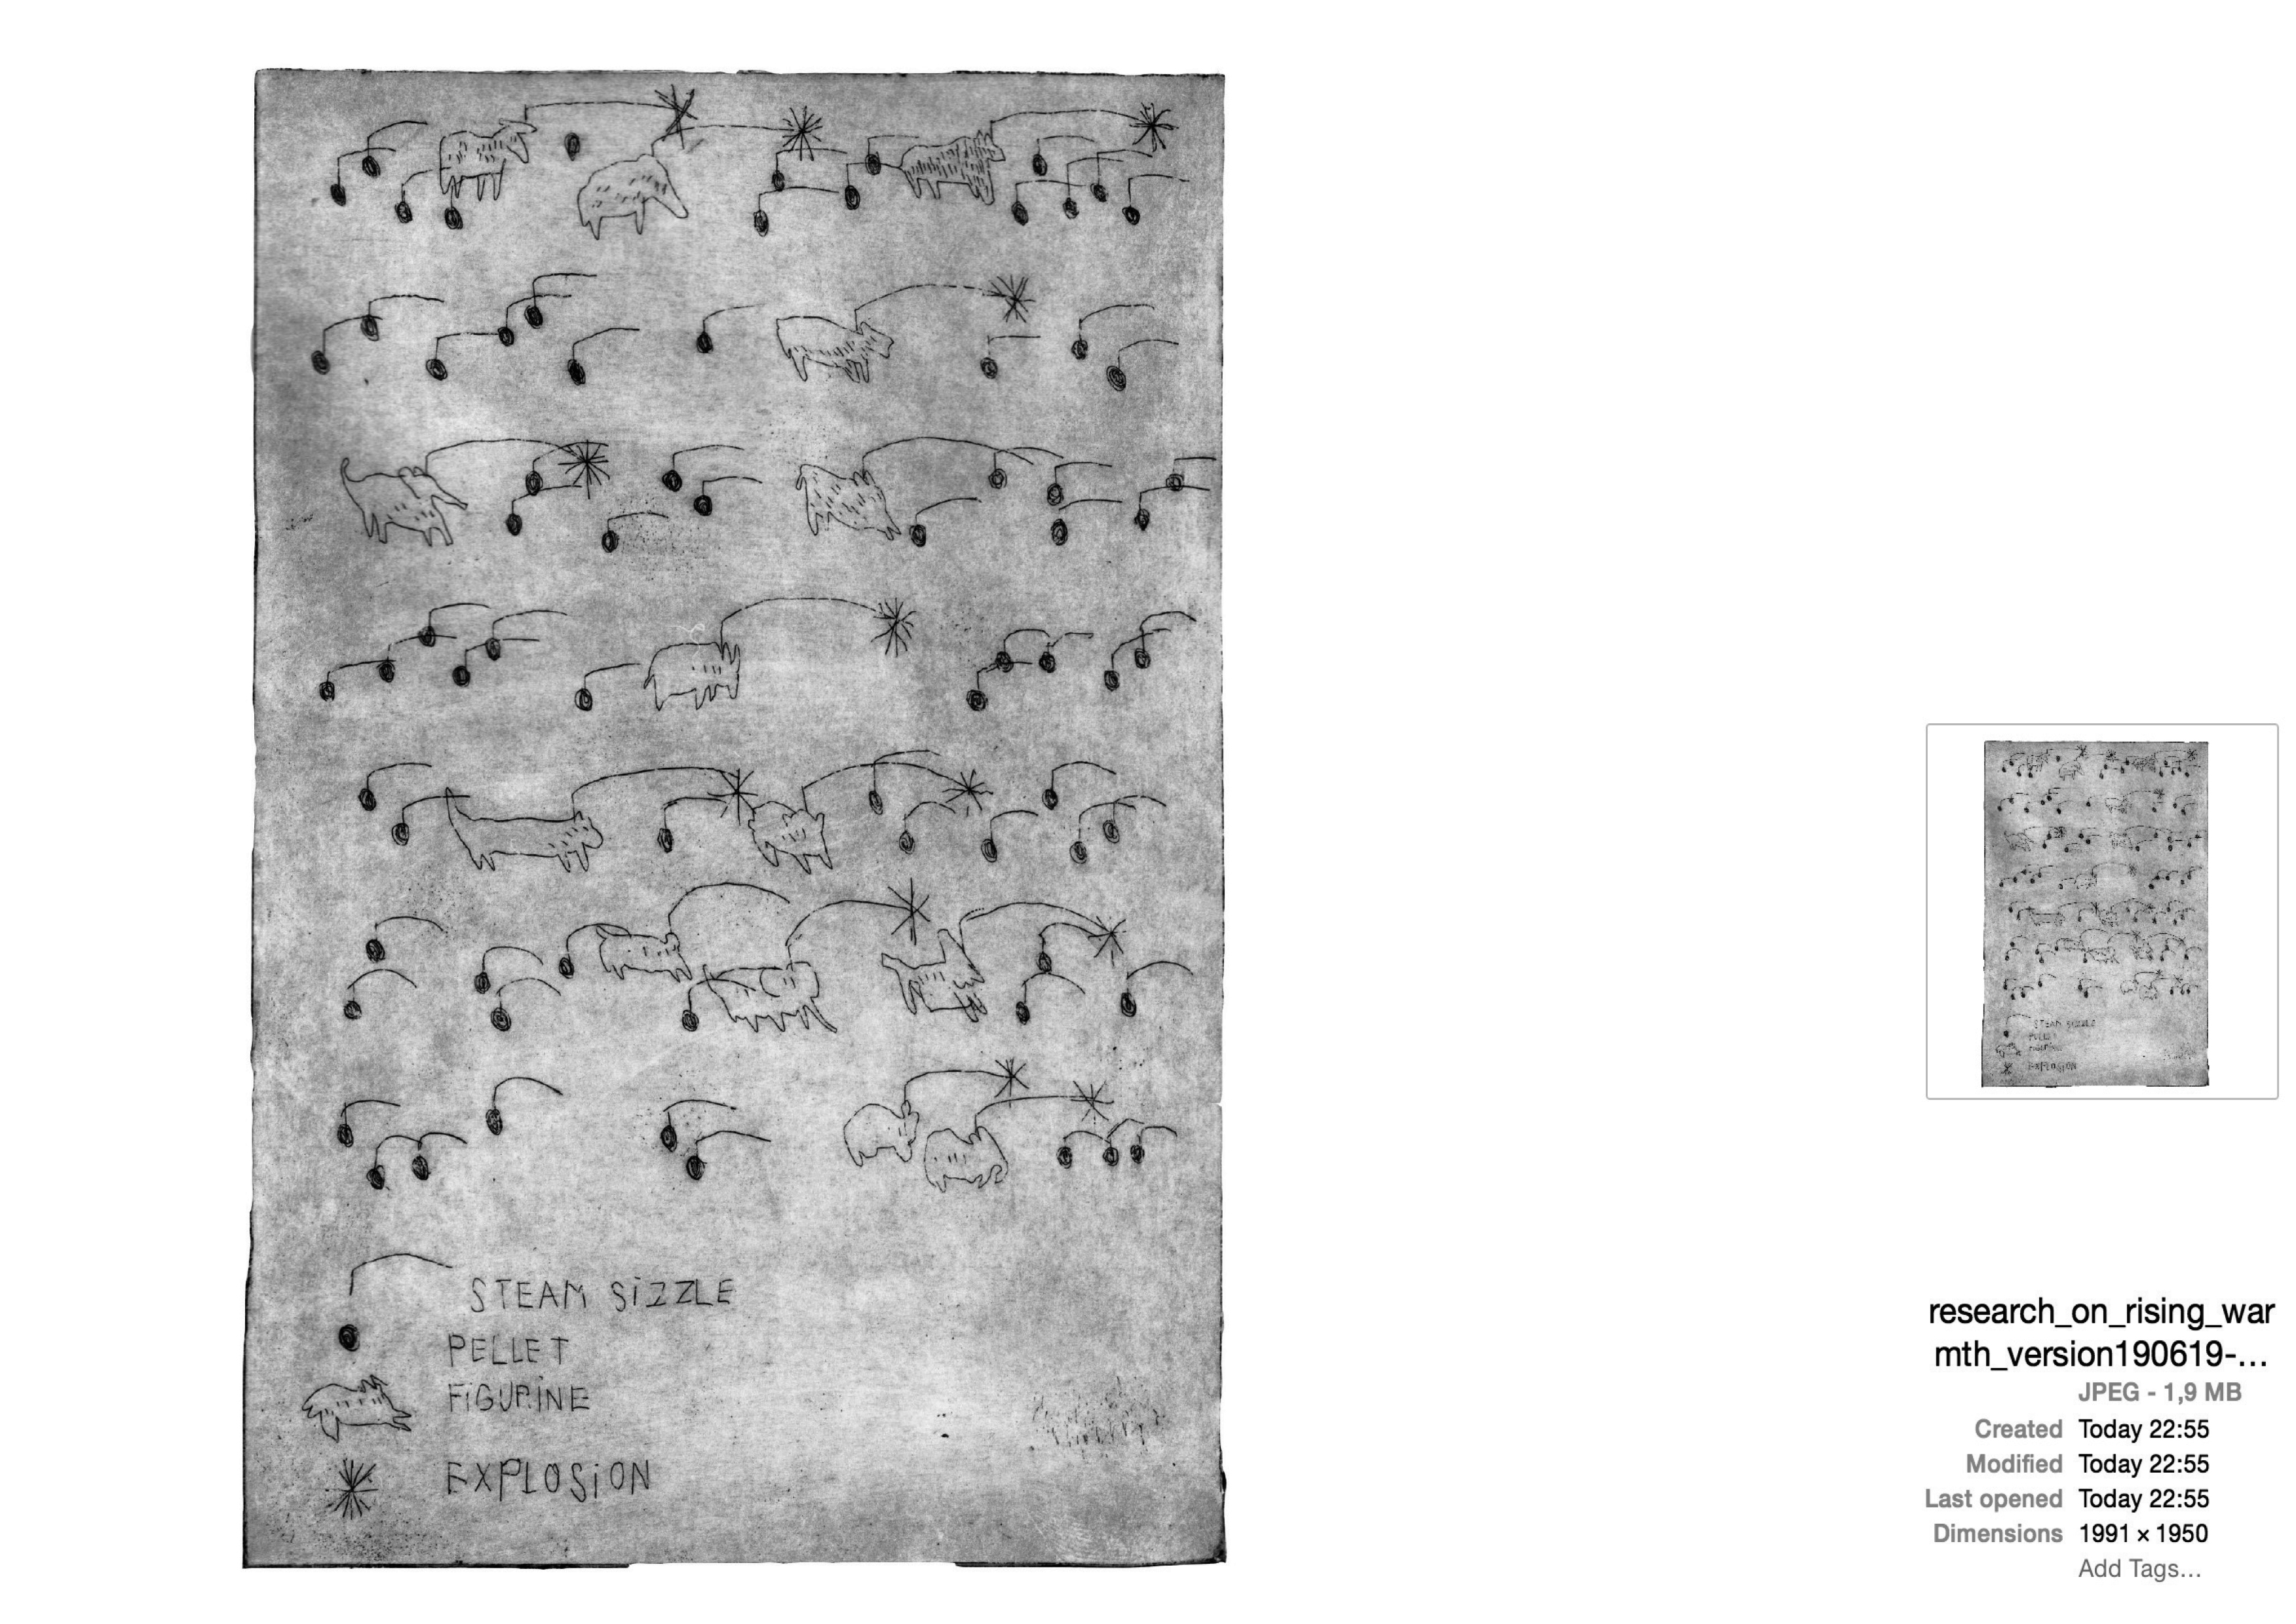 STEAM SIZZLE
PELLET
FIGURINE
EXPLOSION
research_on_rising_war
mth_version190619-...
JPEG - 1,9 MB
Created Today 22:55
Modified Today 22:55
Last opened Today 22:55
Dimensions 1991 × 1950
Add Tags...